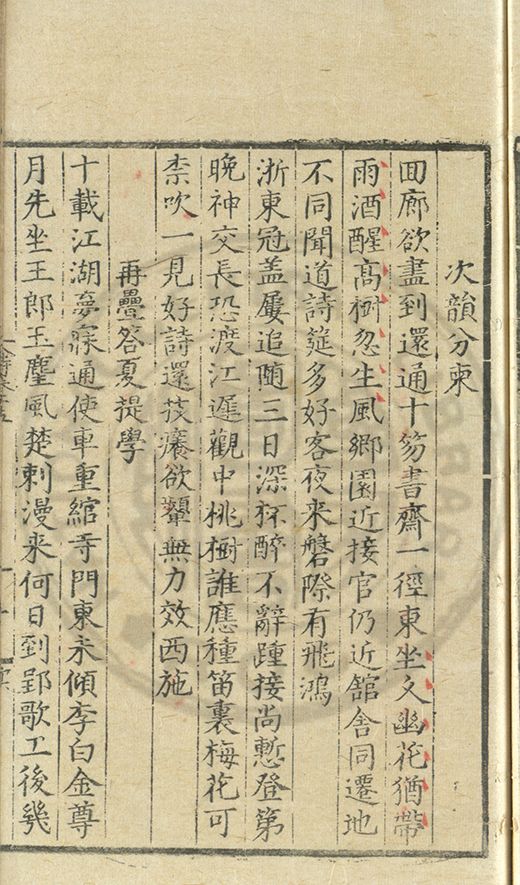 次韻分柬
囬廊欲盡到還通十笏書齋一徑東坐久幽花猶帶
雨酒醒髙樹忽生風鄉園近接官仍近舘舍同遷地
不同聞道詩筵多好客夜来磐際有飛鴻
浙東冠盖屢追随三日深杯醉不辭踵接尚慙登第
晚神交長恐渡江遲觀中桃樹誰應種笛裏梅花可
柰吹一見好詩還技癢欲顰無力效西施
再疊答夏提學
十載江湖夢寐通使車重綰寺門東未傾李白金尊
月先坐王郎玉麈風楚刺漫来何日到郢歌工後幾